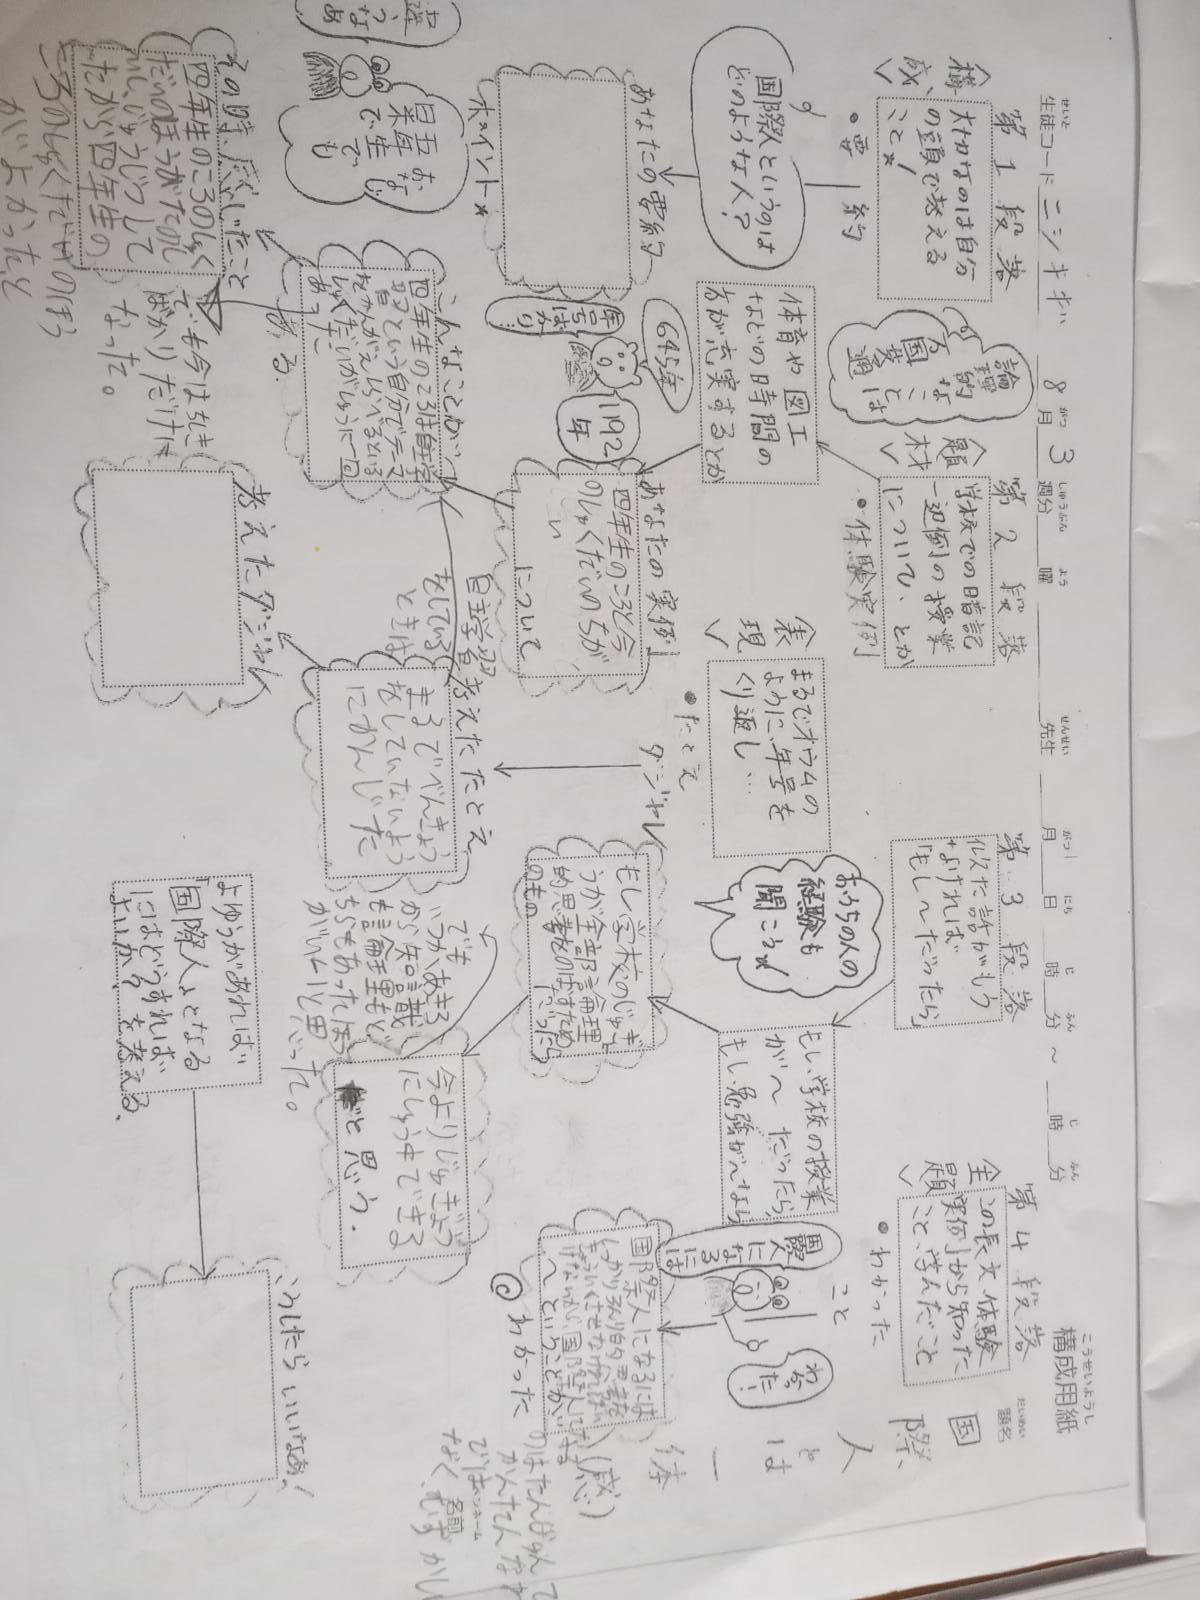 構成用紙
こうせいようし
題名
だいめい
国際人とは一体
生徒コード
せいと
8月3週分
がつ
しゅうぶん
曜
よう
先生
せんせい
月
がつ
日
にち
時
じ
分
ふん
～
時
じ
分
ふん
第1段落
<構成>
大切なのは自分
の頭で考える
こと☆
・要約
国際人というのは
どのような人？
あなたの要約
ポイント☆
おなじ
五年生でも
論理的
なことは
万国共通
第2段落
<題材>
学校での暗記
一辺倒の授業
について、とか
・体験実例
体育や図工
などの時間の
方が充実するとか
645年
1192年
年号ばかり
あなたの実例
四年生のころと今
のしゅくだいのちがい
について
こんなことが
ある。
四年生のころは自学
習という自分でテーマ
をかんがえしらべるという
しゅくだいがしゅうに一回
あった
その時、感じたこと
四年生のころのしゅく
だいのほうがたのし
いし、じゅうじつして
たから四年生の
ころのしゅくだいのほう
がよかったと
でも今は先き
ばかりだけに
なった。
<表現>
まるでオウムの
ように、年号を
くり返し…
・たとえ
ダジャレ
考えたたとえ
自主学習
をしている
ときは
まるでべんきょう
をしていないよう
にかんじた
考えたダジャレ
第3段落
似た話がもう
なければ
「もし〜だったら」
おうちの人の
経験も
聞こう☆
もし、学校の授業
が〜だったら、
もし、勉強が〜なら
もし、学校のじゅぎょ
うが全部、論理
的思考をのばすため
のものだったら
今よりじゅぎょう
にしゅう中できる
と思う。
でも
いつかあきる
から知識
も論理もど
ちらもあったほう
がいいと思った。
第4段落
<主題>
この長文、体験
実例から知った
こと、学んだこと
・わかった
こと
国際人になるには
わかった！
国際人になるには
しっかり論理的思考を
◎わかった
(感)
かんたんなも
のでは
なく、むずかし
よゆうがあれば
「国際人」となる
にはどうすれば
よいか？を考える。
こうしたらいいなあ！